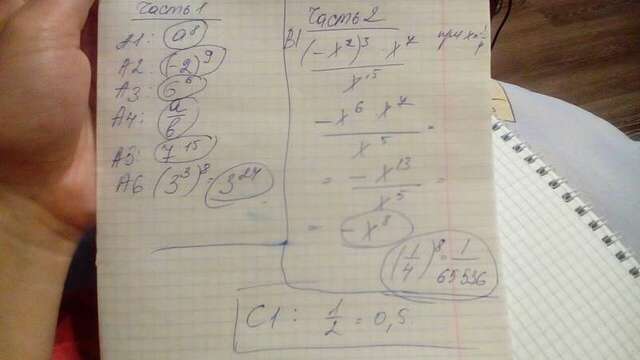 Часть 1
A1: a⁸
A2: (-2)⁹
A3: 6⁶
A4: a/b
A5: 7¹⁵
A6 (3³)⁸ = 3²⁴
Часть 2
B1
(-x²)³ x⁷ / x⁵
-x⁶ x⁷ / x⁵ =
= -x¹³ / x⁵ =
= -x⁸
(1/4)⁸ = 1/65536
C1: 1/2 = 0,5